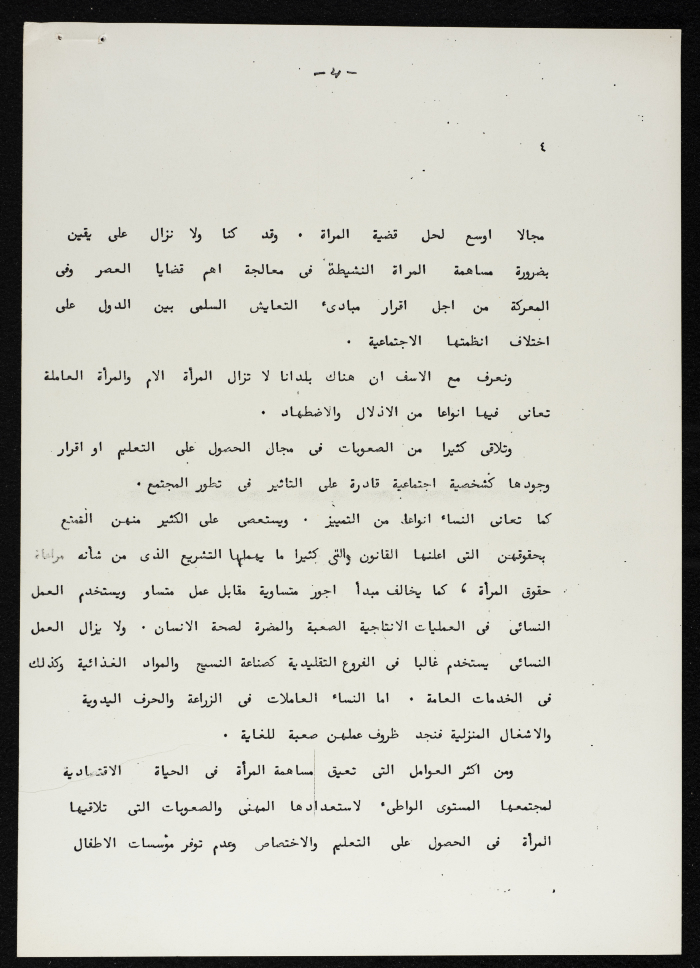 - ٣ -
٤
مجالا اوسع لحل قضية المراة . وقد كنا ولا نزال على يقين
بضرورة مساهمة المراة النشيطة فى معالجة اهم قضايا العصر وفى
المعركة من اجل اقرار مبادىء التعايش السلمى بين الدول على
اختلاف انظمتها الاجتماعية .
ونعرف مع الاسف ان هناك بلدانا لا تزال المرأة الام والمرأة العاملة
تعانى فيها انواعا من الاذلال والاضطهاد .
وتلاقى كثيرا من الصعوبات فى مجال الحصول على التعليم او اقرار
وجودها كشخصية اجتماعية قادرة على التاثير فى تطور المجتمع .
كما تعانى النساء انواعا من التمييز . ويستعصى على الكثير منهن التمتع
بحقوقهن التى اعلنها القانون والتى كثيرا ما يهملها التشريع الذى من شأنه مراعاة
حقوق المرأة ، كما يخالف مبدأ اجور متساوية مقابل عمل متساو ويستخدم العمل
النسائى فى العمليات الانتاجية الصعبة والمضرة لصحة الانسان . ولا يزال العمل
النسائى يستخدم غالبا فى الفروع التقليدية كصناعة النسيج والمواد الغذائية وكذلك
فى الخدمات العامة . اما النساء العاملات فى الزراعة والحرف اليدوية
والاشغال المنزلية فنجد ظروف عملهن صعبة للغاية .
ومن اكثر العوامل التى تعيق مساهمة المرأة فى الحياة الاقتصادية
لمجتمعها المستوى الواطىء لاستعدادها المهنى والصعوبات التى تلاقيها
المرأة فى الحصول على التعليم والاختصاص وعدم توفر مؤسسات الاطفال